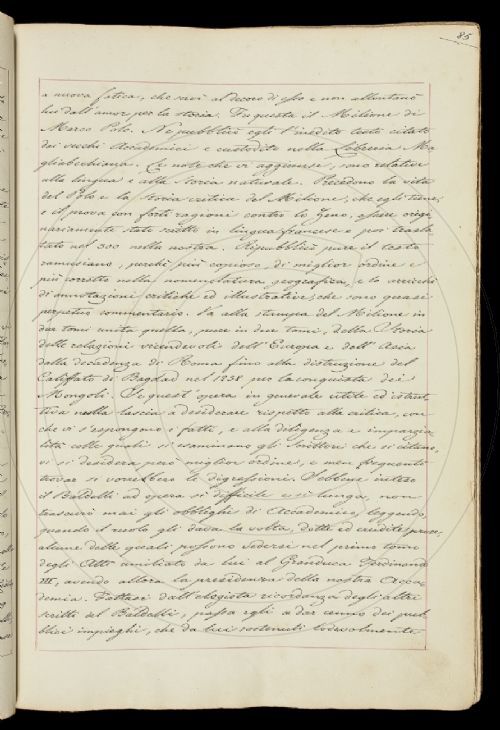 85
a nuova fatica, che servì al decoro di esso e non allontanò
lui dall'amor per la storia. Fu questa il Milione di
Marco Polo. Ne pubblicò egli l'inedito testo citato
dai vecchi Accademici e custodito nella Libreria Ma
gliabechiana. Le note che vi aggiunse, sono relative
alla lingua e alla storia naturale. Precedono la vita
del Polo e la Storia critica del Milione, che egli tiene,
e il prova con forti ragioni contro lo Zeno, essere origi
nariamente stato scritto in lingua francese e poi trasla
tato nel 300 nella nostra. Ripubblicò pure il testo
ramusiano, perchè più copioso, di miglior ordine e
più corretto nella nomenclatura geografica, e lo arricchì
di annotazioni critiche ed illustrative, che sono quasi
perpetuo commentario. Fa alla stampa del Milione in
due tomi unita quella, pure in due tomi, della Storia
delle relazioni vicendevoli dell'Europa e dell'Asia
dalla decadenza di Roma fino alla distruzione del
Califfato di Bagdad nel 1258 per la conquista dei
Mongoli. Se quest'opera in generale utile ed istrut
tiva nulla lascia a desiderare rispetto alla critica, con
che vi s'espongono i fatti, e alla diligenza e imparzia
lità colle quali si esaminano gli Scrittori che si citano,
vi si desidera però miglior ordine, e men frequenti
trovar si vorrebbero le digressioni. Sebbene inteso
il Baldelli ad opera sì difficile e sì lunga, non
trascurò mai gli obblighi di Accademico, leggendo,
quando il ruolo gli dava la volta, dotte ed erudite prose,
alcune delle quali possono vedersi nel primo tomo
degli Atti umiliato da lui al Granduca Ferdinando
III, avendo allora la presidenza della nostra Acca
demia. Fattasi dall'elogista ricordanza degli altri
scritti del Baldelli, passa egli a dar cenno dei pub
blici impieghi, che da lui sostenuti lodevolmente